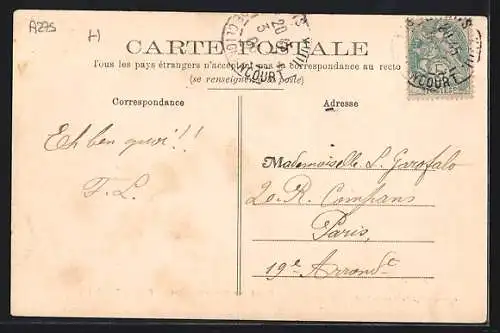 A275
H
CARTE POSTALE
Tous les pays étrangers n'acceptent pas la correspondance au recto
(se renseigner à la poste)
Correspondance
Adresse
Eh ben quoi!!
F. L.
Mademoiselle L. Garofalo
20. R. Compans
Paris,
19e Arrondt